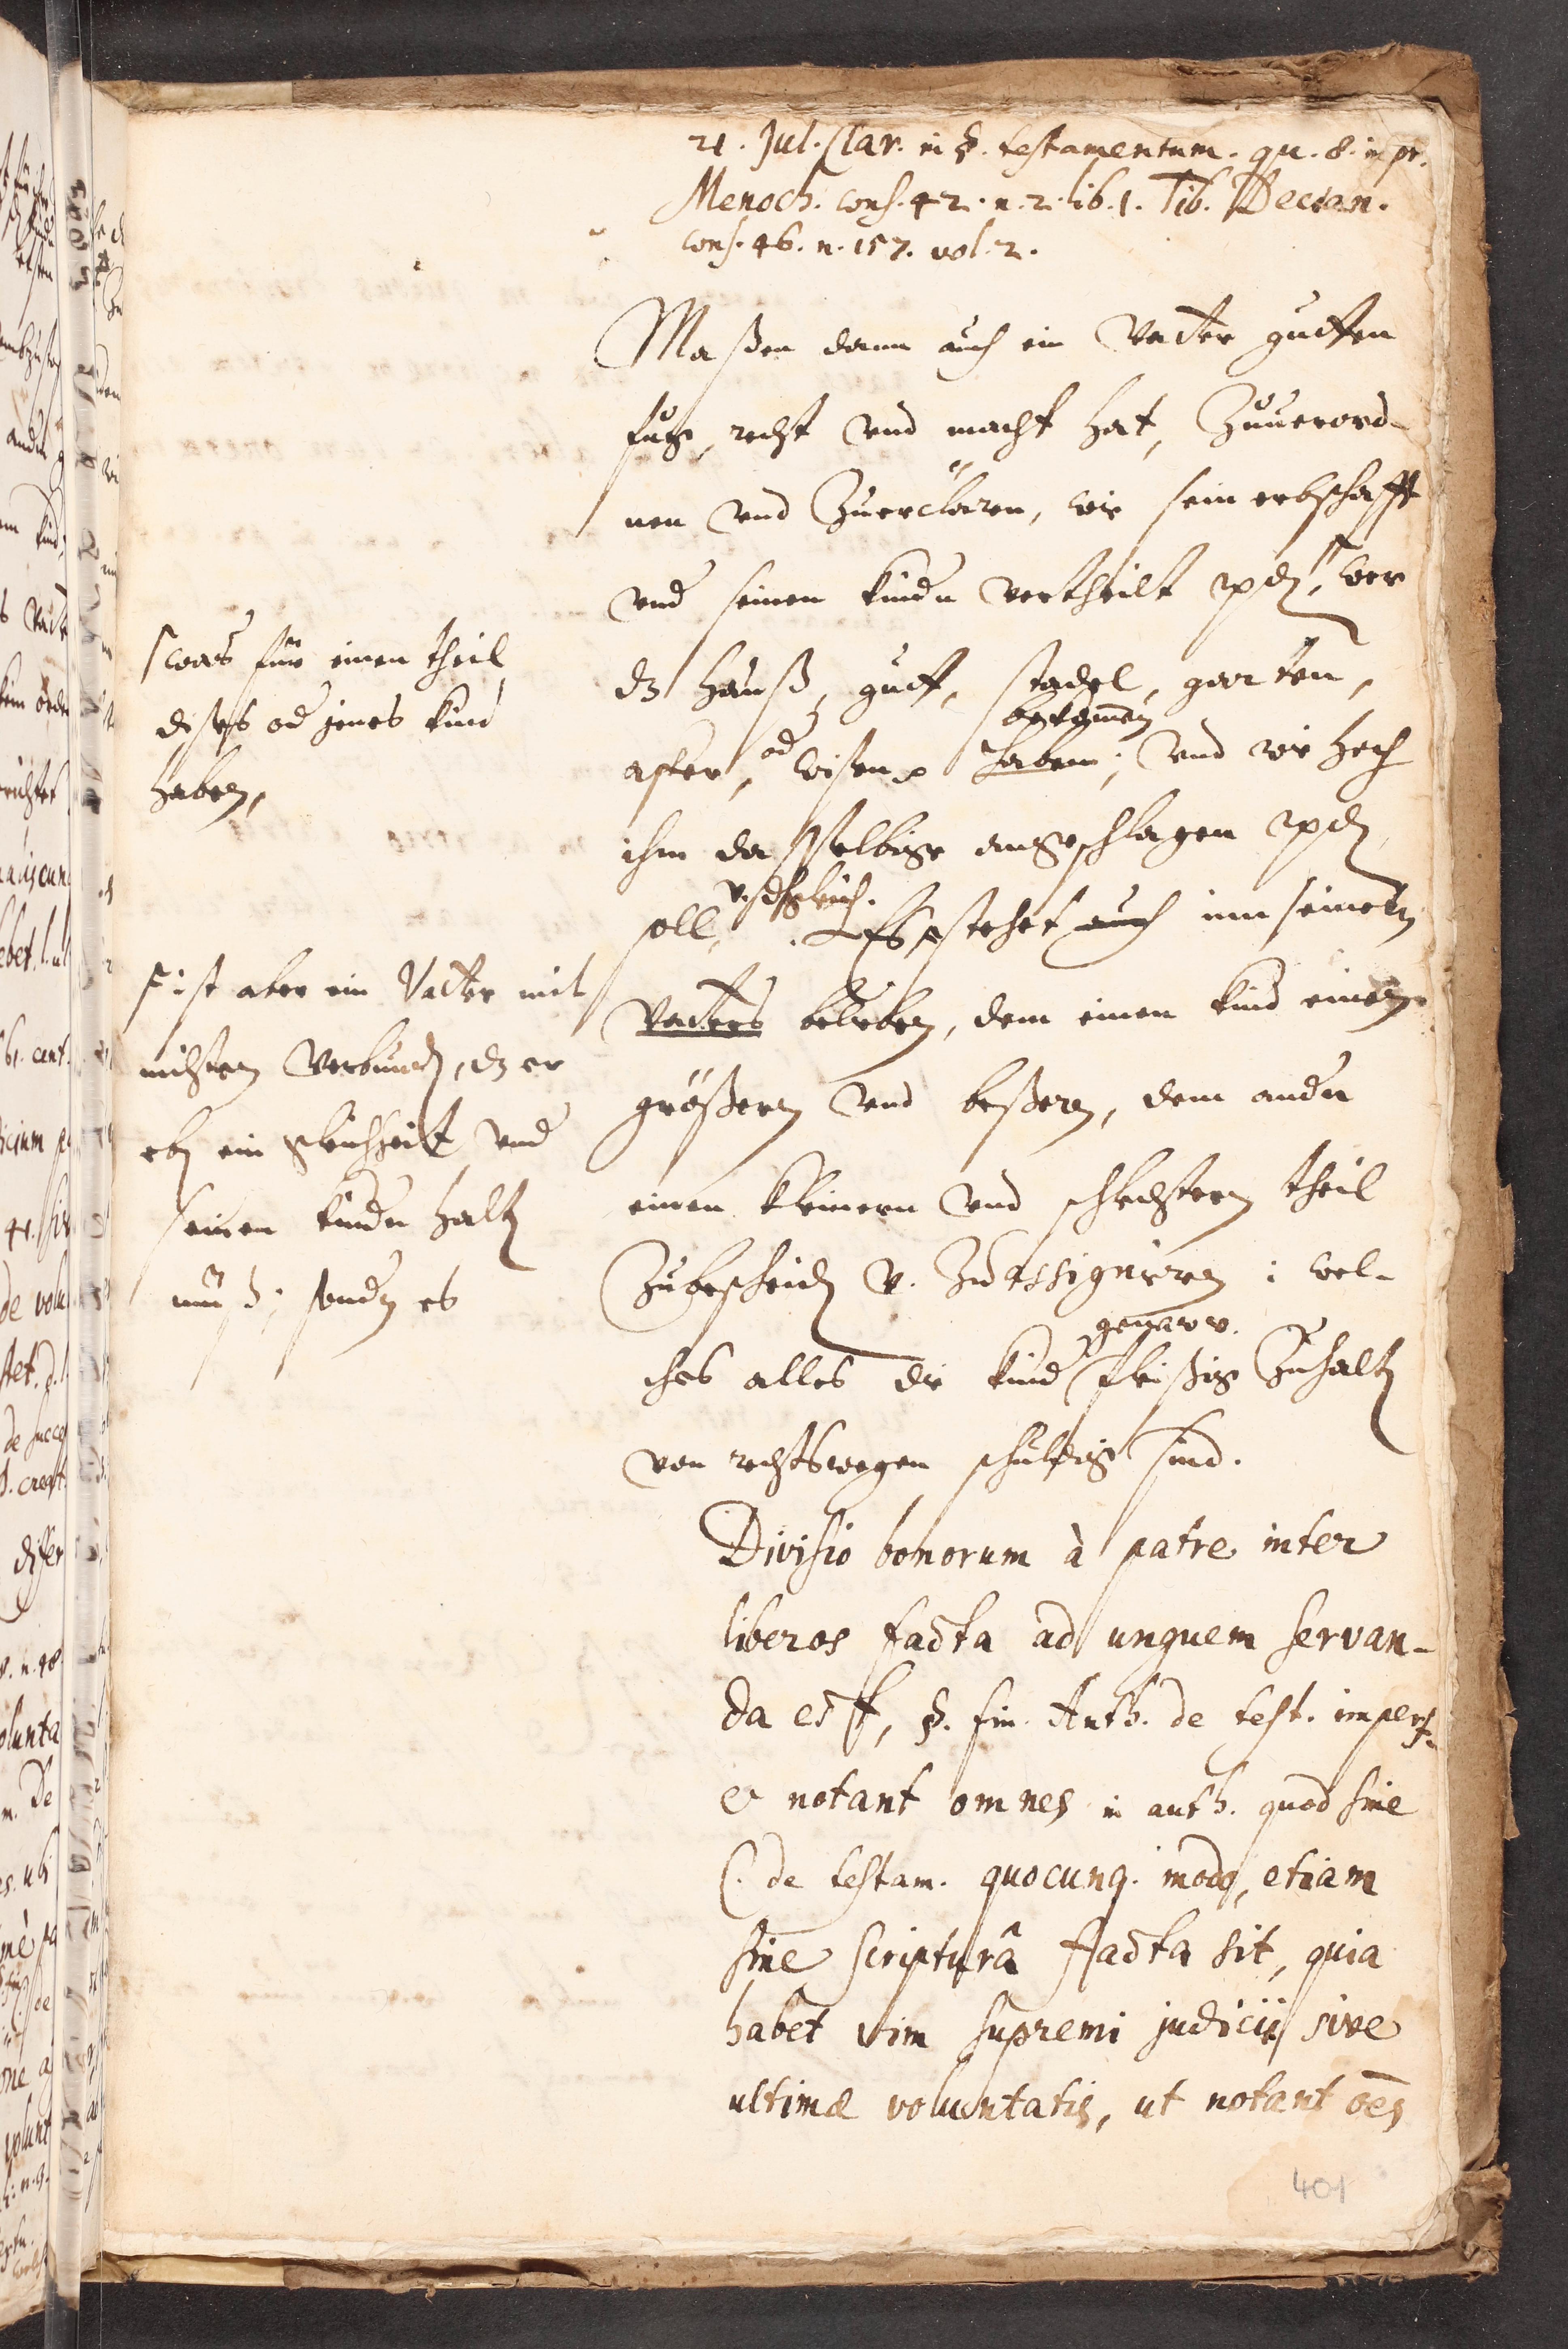 21. Jul. Clar. in §. testamentum. qu. 8. in pr.
Menoch. cons. 42. n. 2. lib. 1. Tib. Decian.
cons. 46. n. 157. vol. 2.
Maßen dann auch ein Vatter gutten
fug, recht vnd macht hat, Zuuerord-
nen vnd Zuerclären, wie sein erbschafft
vnd seinen kindern vertheilt werden, wer
dz hauß, gutt, stadel, garten,
bekommen
äker, od wisen haben; vnd wie hoch
ihm dasselbige angeschlagen werden
v. dsgleich.
soll, Es stehet auch inn seinem
Vatters belieben, dem einen kind einen
größern vnd beßern, dem andern
einen kleinern vnd schlechtern theil
Zubescheiden v. Zu assigniren; wel-
genaw v.
ches alles die kind fleißig Zuhalten
von rechtswegen schuldig sind.
Divisio bonorum à patre inter
liberos facta ad unguem servan-
da est, §. fin. Auth. de test. imperf.
& notant omnes in auth. quod sine
C. de testam. quocunq. modo, etiam
sine scripturâ facta sit, quia
habet vim supremi judicii sive
ultimæ voluntatis, ut notant oēs
was für einen theil
dises od jenes kind
haben,
ist aber ein Vatter mit
nichten verbunden, dz er
eben ein gleichheit vnd
seinen kindern halten
muß; sondern es
401